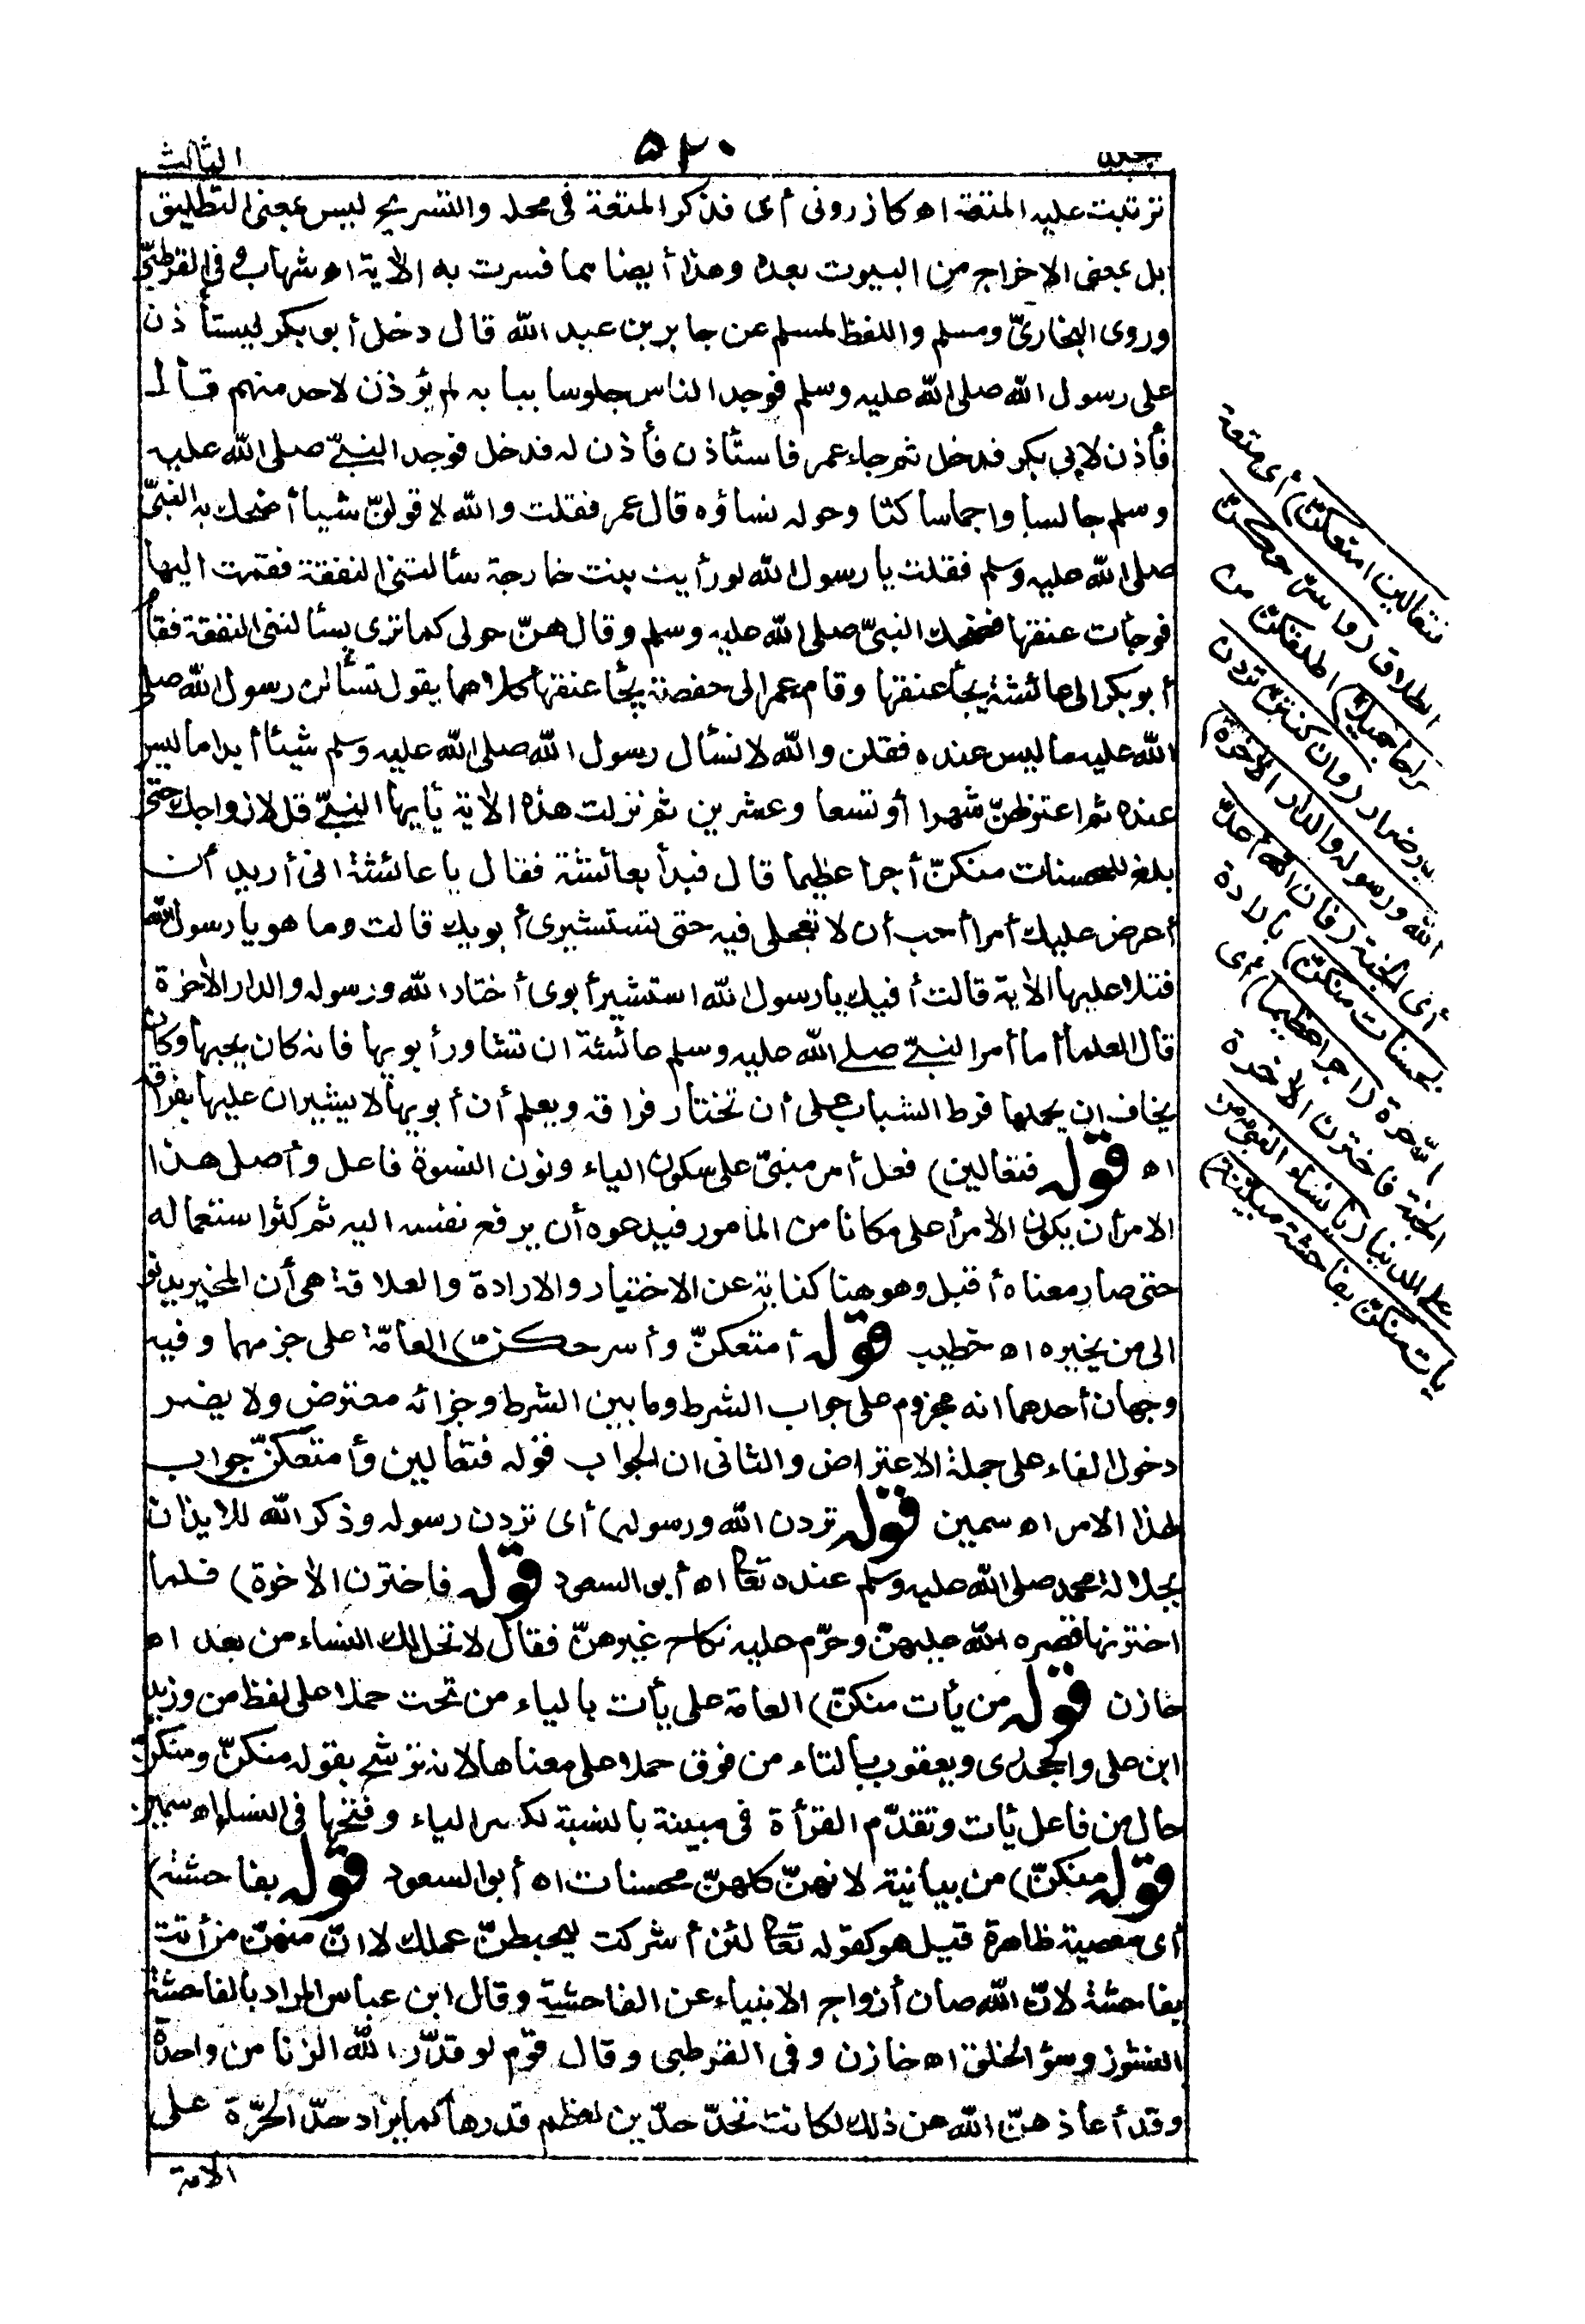 الثالث
۵۲۰
تترتبت عليه المتعة اه كازرونى أى فذكر المتعة فى محله والتسريح ليس بمعنى التطليق
بل بمعنى الاخراج من البيوت بعده وهذا أيضا مما فسرت به الأية اه شهاب وفى القرطبىّ
وروى البخارىّ ومسلم واللفظ لمسلم عن جابر بن عبد الله قال دخل أبو بكر ليستأذن
على رسول الله صلى الله عليه وسلم فوجد الناس جلوسا ببابه لم يؤذن لاحد منهم قال
فأذن لابى بكر فدخل ثم جاء عمر فاستأذن فأذن له فدخل فوجد النبىّ صلى الله عليه
وسلم جالسا واجماساكتا وحوله نساؤه قال عمر فقلت والله لاقولنّ شيأ أضحك به النبىّ
صلى الله عليه وسلم فقلت يا رسول الله لو رأيت بنت خارجة سألتنى النفقة فقمت اليها
فوجأت عنقها فضحك النبىّ صلى الله عليه وسلم وقال هنّ حولى كما ترى يسألننى النفقة فقام
أبو بكر الى عائشة يجأ عنقها وقام عمر الى حفصة يجأ عنقها كلاهما يقول تسألن رسول الله صلى
الله عليه ما ليس عنده فقلن والله لا نسأل رسول الله صلى الله عليه وسلم شيئا أبدا ما ليس
عنده ثم اعتزلهنّ شهرا أو تسعا وعشرين ثم نزلت هذه الأية يأيها النبىّ قل لازواجك حتى
بلغ للمحسنات منكنّ أجرا عظيما قال فبدأ بعائشة فقال يا عائشة انى أريد أن
أعرض عليك أمرا أحب أن لا تعجلى فيه حتى تستشيرى أبويك قالت وما هو يا رسول الله
فتلا عليها الأية قالت أفيك يا رسول الله استشير أبوى أختار الله ورسوله والدار الأخرة
قال العلما أما أمر النبىّ صلى الله عليه وسلم عائشة ان تشاور أبويها فانه كان يحبها وكان
يخاف ان يحملها فرط الشباب على أن تختار فراقه ويعلم أن أبويها لا يشيران عليها بفراقه
اه قوله فتعالين) فعل أمر مبنىّ على سكون الياء ونون النسوة فاعل وأصل هذا
الامر أن يكون الأمر أعلى مكانا من المأمور فيدعوه أن يرفع نفسه اليه ثم كثر استعماله
حتى صار معناه أقبل وهو هنا كناية عن الاختيار والارادة والعلاقة هى أن المخبر يدنو
الى من يخبره اه خطيب قوله أمتعكنّ وأسرحكنّ) العامّة على جزمهما وفيه
وجهان أحدهما انه مجزوم على جواب الشرط وما بين الشرط وجزائه معترض ولا يضر
دخول الفاء على جملة الاعتراض والثانى ان الجواب قوله فتعالين وأمتعكنّ جواب
لهذا الامر اه سمين قوله تردن الله ورسوله) أى تردن رسوله وذكر الله للايذان
بجلالة محمد صلى الله عليه وسلم عنده تعالى اه أبو السعود قوله فاخترن الأخرة) فلما
اخترنها قصره الله عليهنّ وحرّم عليه نكاح غيرهنّ فقال لا تحل لك النساء من بعد اه
خازن قوله من يأت منكنّ) العامة على يأت بالياء من تحت حملا على لفظ من وزيد
ابن على والجحدرى ويعقوب بالتاء من فوق حملا على معناها لانه ترشح بقوله منكنّ ومنكنّ
حال من فاعل يأت وتقدّم القرأة فى مبينة بالنسبة لكسر الياء وفتحها فى النساء اه سمين
قوله منكنّ) من بيانية لانهنّ كلهنّ محسنات اه أبو السعود قوله بفاحشة)
أى معصية ظاهرة قيل هو كقوله تعالى لئن أشركت ليحبطنّ عملك لا انّ منهنّ من أتت
بفاحشة لانّ الله صان أزواج الانبياء عن الفاحشة وقال ابن عباس المراد بالفاحشة
النشوز وسؤ الخلق اه خازن وفى القرطبى وقال قوم لو قدّر الله الزنا من واحدة
وقد أعاذهنّ الله من ذلك لكانت تحدّ حدّين لعظم قدرها كما يزاد حدّ الحرّة على
الامة
فتعالين امتعكنّ) أى متعة
الطلاق (واسرّحكنّ
سراحا جميلا) اطلقكنّ من
غير ضرار (وان كنتنّ تردن
الله ورسوله والدار الأخرة)
أى الجنة (فان الله أعدّ
للمحسنات منكنّ) بارادة
الأخرة (اجرا عظيما) أى
الجنة فاخترن الأخرة
على الدنيا (يا نساء النبى من
يأت منكنّ بفاحشة مبيّنة)